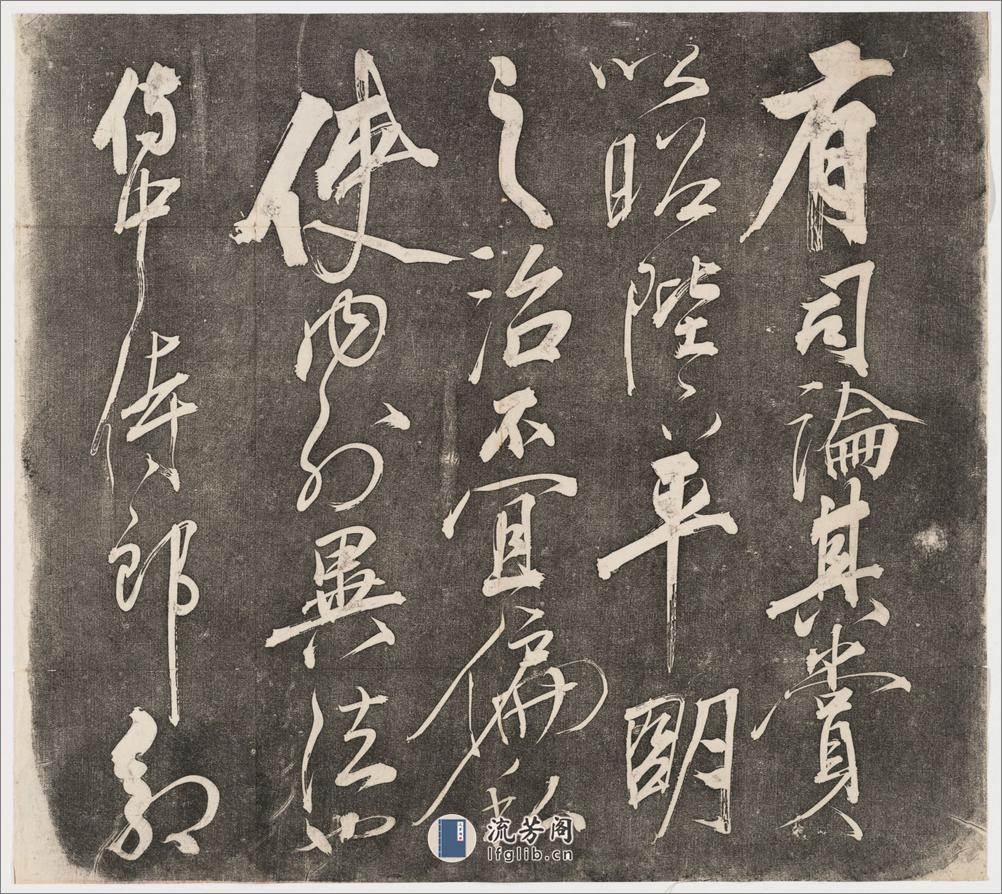 有司論其賞
以昭陛下平明
之治不宜偏私
使內外異法也
侍中侍郎郭
流芳阁
lfglib.cn